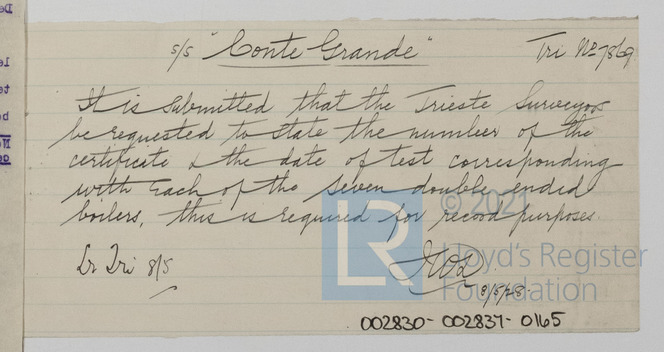 s/s "Conte Grande" Tri. No 7869
It is submitted that the Trieste Surveyors
be requested to state the number of the
certificate & the date of test corresponding
with each of the seven double ended
boilers, this is required for record purposes
Lr Tri 8/5
8/5/28.
© 2021
LR
Lloyd's Register
Foundation
002830-002837-0165